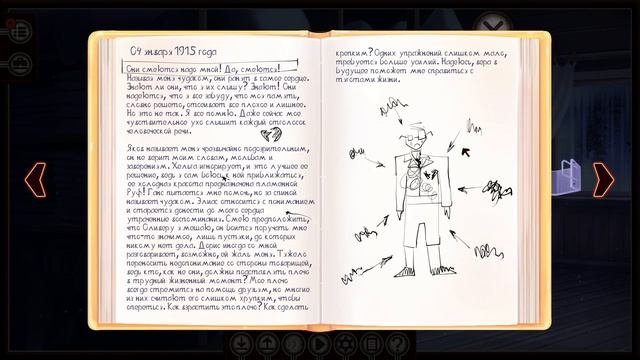 04 января 1915 года
Они смеются надо мной! Да, смеются!
Называя меня чудаком, они ранят в самое сердце.
Знают ли они, что я их слышу? Знают! Они
надеются, что я все забуду, что моя память,
словно решето, отсеивает все плохое и лишнее.
Но это не так. Я все помню. Даже сейчас мое
чувствительное ухо слышит каждый отголосок
человеческой речи.
Яков называет меня чрезвычайно подозрительным,
он не верит моим словам, мольбам и
Хельга игнорирует, и это лучшее ее
решение, ведь я сам боюсь к ней приближаться,
ее холодная красота предназначена пламенной
Руф! Ганс пытается мне помочь, но за спиной
называет чудаком. Элиас относится с пониманием
и старается донести до моего сердца
утраченные воспоминания. Смею предположить,
что Оливеру я мешаю, он боится поручать мне
что-то значимое, лишь пустяки, до которых
никому нет дела. Дорис иногда со мной
разговаривает, возможно, ей жаль меня. Тяжело
переносить недопонимание со стороны товарищей,
ведь кто, как не они, должны подставлять плечо
в трудный жизненный момент? Мое плечо
всегда стремится на помощь друзьям, но многие
из них считают его слишком хрупким, чтобы
опереться. Как взрастить это плечо? Как сделать
крепким? Одних упражнений слишком мало,
требуется больше усилий. Надеюсь, вера в
будущее поможет мне справиться с
тяготами жизни.